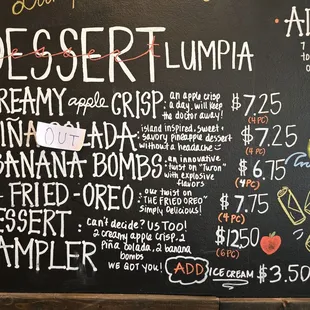 DESSERT LUMPIA
CREAMY apple CRISP: an apple crisp
a day, will keep
the doctor away!
$7.25
(4 PC)
PIÑA COLADA: island inspired, sweet +
savory pineapple dessert
without a headache
OUT
$7.25
(4 PC)
BANANA BOMBS: an innovative
twist on "Turon"
with explosive
flavors
$6.75
(4 PC)
FRIED-OREO: our twist on
"THE FRIED OREO"
simply Delicious!
$7.75
(4 PC)
DESSERT
SAMPLER: can't decide? US TOO!
2 creamy apple crisp, 2
piña colada, 2 banana
bombs
WE GOT YOU!
$12.50
(6 PC)
ADD ICE CREAM $3.50